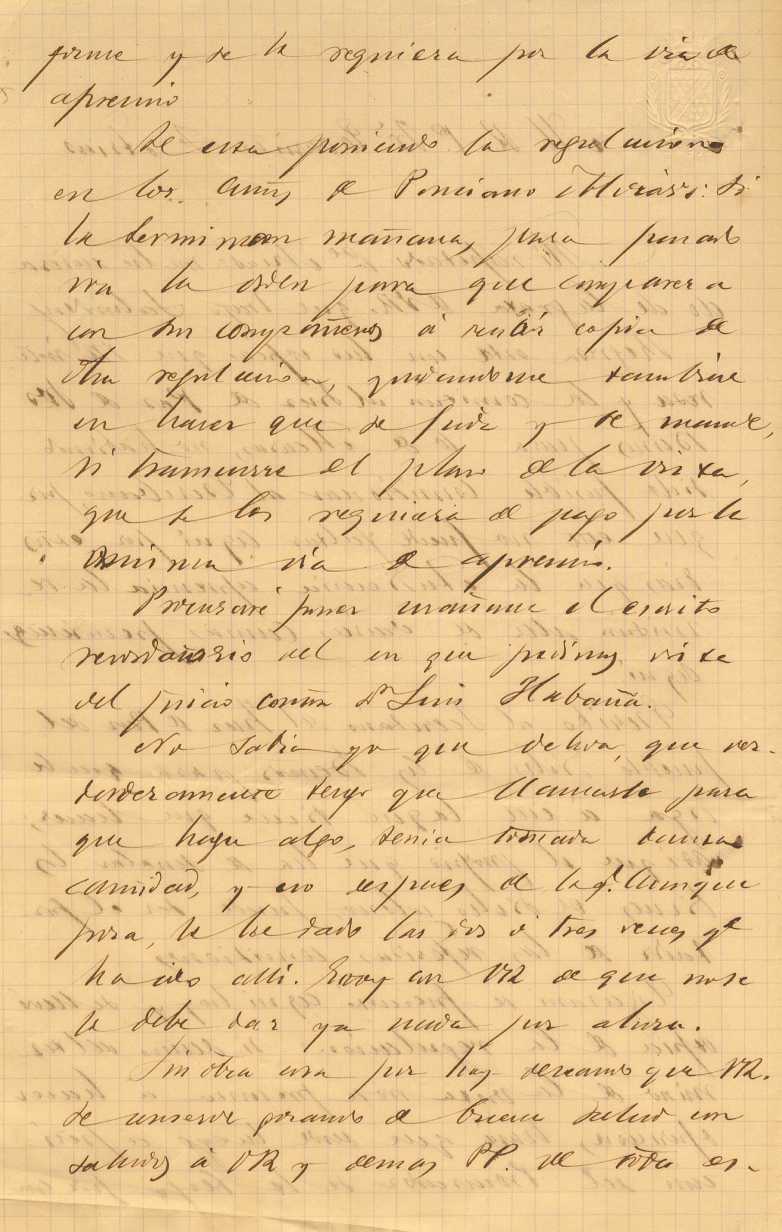 firme y se le requiera por la via de
apremio
Se esta poniendo la regulacion
en los autos de Ponciano Illeras: si
la terminan mañana, para pasado
irá la orden para que comparezca
con sus compañeros á recibir copia de
dha regulacion, quedandome tambien
en hacer que se pida y se mande,
si transcurre el plazo de la vista,
que se les requiera de pago por la
misma via de apremio.
Procuraré poner mañana el escrito
recordatorio del en que pedimos vista
del juicio contra Dn Luis
No sabia yo que debiva, que ver-
daderamente tengo que llamarle para
que haga algo, tenia tomada tanta
cantidad, y eso despues de la q.
, le he dado las dos ó tres veces qe
ha ido alli. Estoy con VR de que no se
le debe dar ya nada por ahora.
Sin otra cosa por hoy deseando que VR.
se conserve gozando de buena salud con
saludos á VR y demas PP. de toda es-